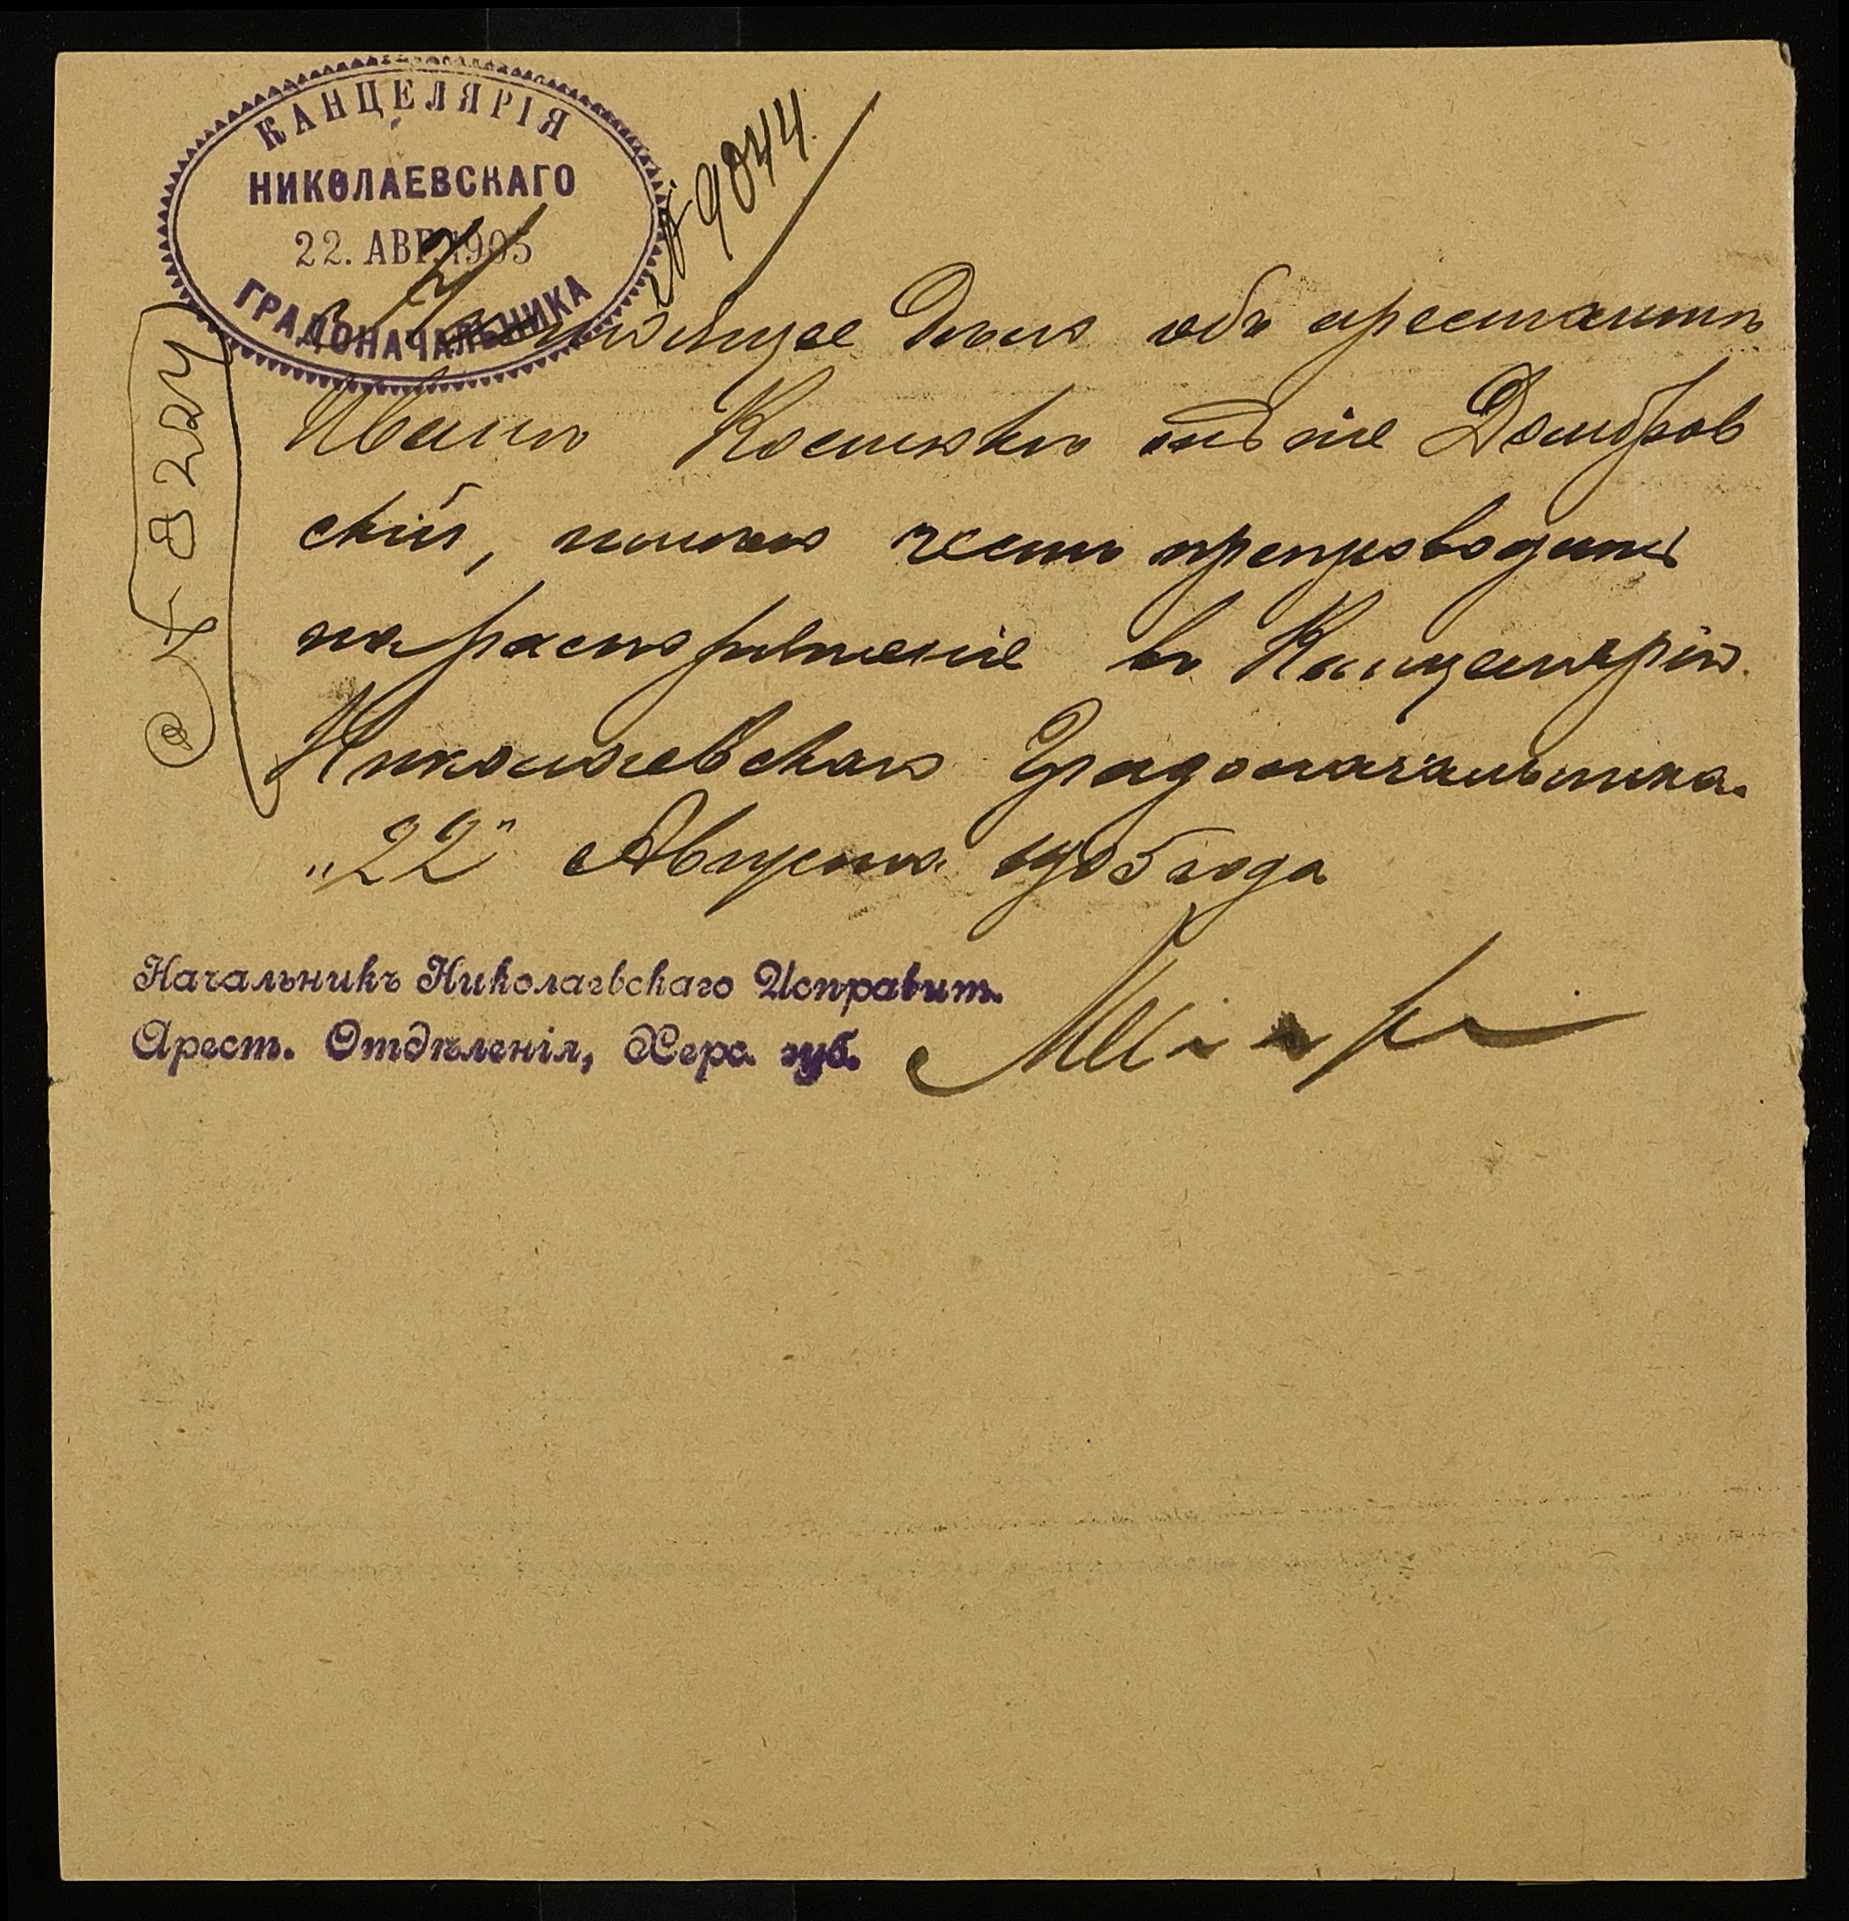 КАНЦЕЛЯРІЯ
НИКОЛАЕВСКАГО
22. АВГ. 1905
ГРАДОНАЧАЛЬНИКА
№ 9044.
№ 8224
Настоящее дѣло объ арестантѣ
Иванѣ онъ же Домбров
скій, имѣю честь препроводить
на распоряженіе въ Канцелярію
Николаевскаго Градоначальника.
„22" Августа 1905 года
Начальникъ Николаевскаго Исправит.
Арест. Отдѣленія, Херс. губ.